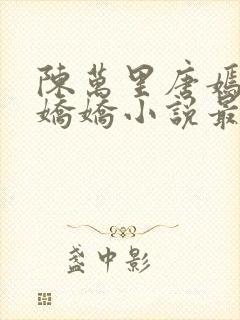 陳萬里唐嫣
嬌嬌小說最
盞中影